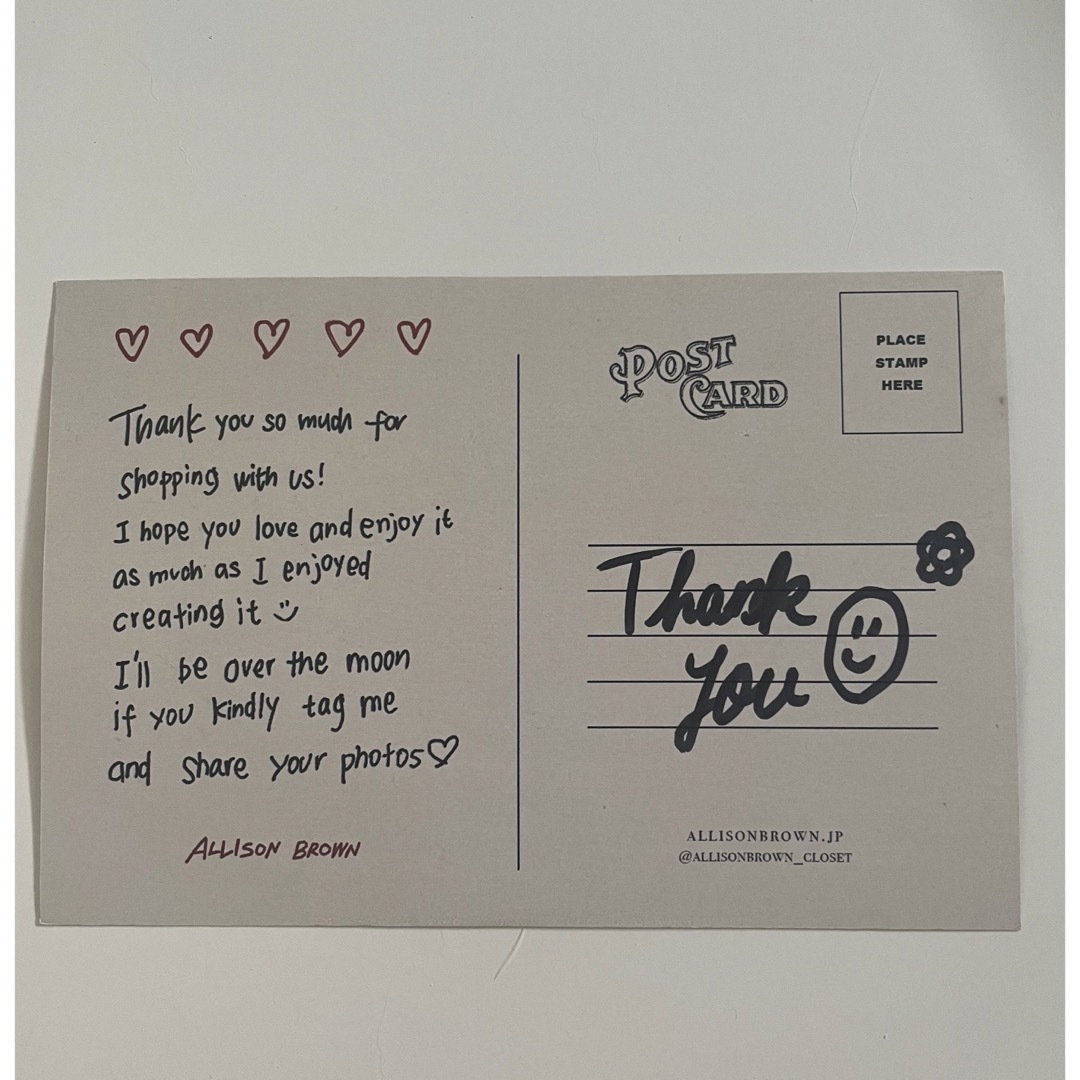 Thank you so much for
shopping with us!
I hope you love and enjoy it
as much as I enjoyed
creating it
I'll be over the moon
if you kindly tag me
and share your photos♡
ALLISON BROWN
POST
CARD
PLACE
STAMP
HERE
Thank
you
ALLISONBROWN.JP
@ALLISONBROWN_CLOSET